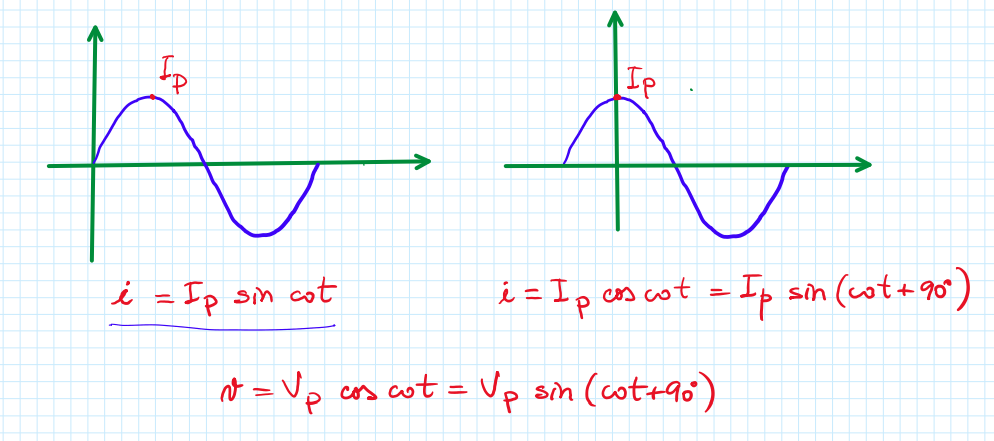 I_p
I_p
i = I_p sin ωt
i = I_p cos ωt = I_p sin (ωt+90°)
v = V_p cos ωt = V_p sin (ωt+90°)